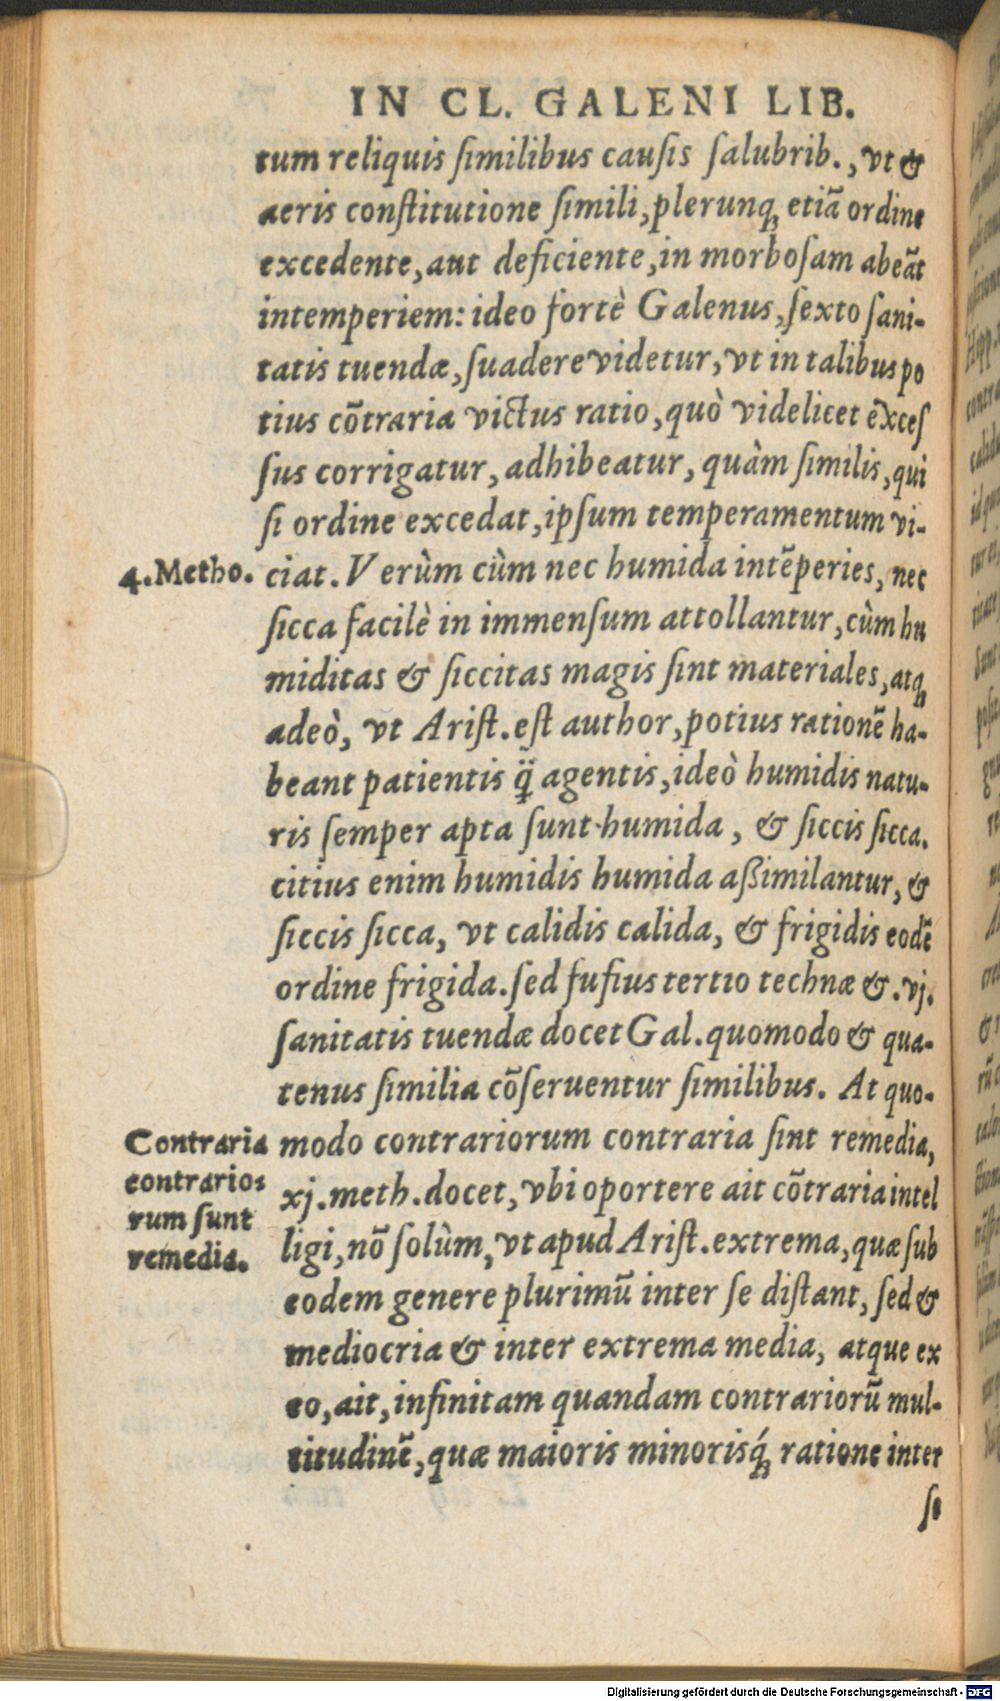 IN CL. GALENI LIB.
tum reliquis ſimilibus cauſis ſalubrib., vt &
aeris conſtitutione ſimili, plerunq; etiã ordine
excedente, aut deficiente, in morboſam abeãt
intemperiem: ideo fortè Galenus, ſexto ſani-
tatis tuendæ, ſuadere videtur, vt in talibus po
tius cõtraria victus ratio, quò videlicet exceſ
ſus corrigatur, adhibeatur, quàm ſimilis, qui
ſi ordine excedat, ipſum temperamentum vi-
4. Metho.
ciat. Verùm cùm nec humida intẽperies, nec
ſicca facilè in immenſum attollantur, cùm hu
miditas & ſiccitas magis ſint materiales, atq;
adeò, vt Ariſt. eſt author, potius rationẽ ha-
beant patientis q̈̃ agentis, ideò humidis natu-
ris ſemper apta ſunt humida, & ſiccis ſicca.
citius enim humidis humida aßimilantur, &
ſiccis ſicca, vt calidis calida, & frigidis eodẽ
ordine frigida. ſed fuſius tertio technæ &. vj.
ſanitatis tuendæ docet Gal. quomodo & qua-
tenus ſimilia cõſeruentur ſimilibus. At quo-
Contraria
contrario-
rum ſunt
remedia.
modo contrariorum contraria ſint remedia,
xj. meth. docet, vbi oportere ait cõtraria intel
ligi, nõ ſolùm, vt apud Ariſt. extrema, quæ ſub
eodem genere plurimũ inter ſe diſtant, ſed &
mediocria & inter extrema media, atque ex
eo, ait, infinitam quandam contrariorũ mul-
titudinẽ, quæ maioris minorisq́; ratione inter
ſe
Digitalisierung gefördert durch die Deutsche Forschungsgemeinschaft - DFG